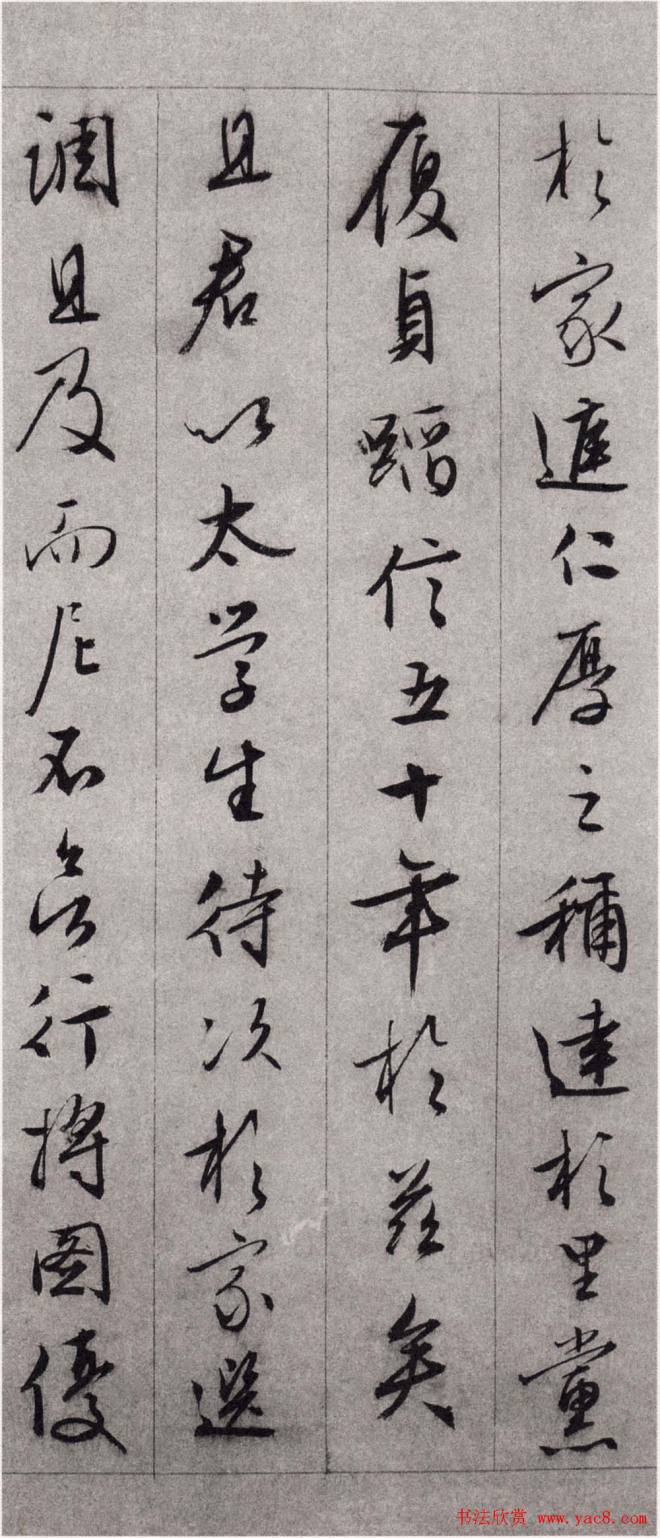 於家廷仁厚之稱達於里黨
履貞蹈信五十年於茲矣
且君以太學生待次於家選
調且及而尼不公行將圖優
书法欣赏 www.yac8.com